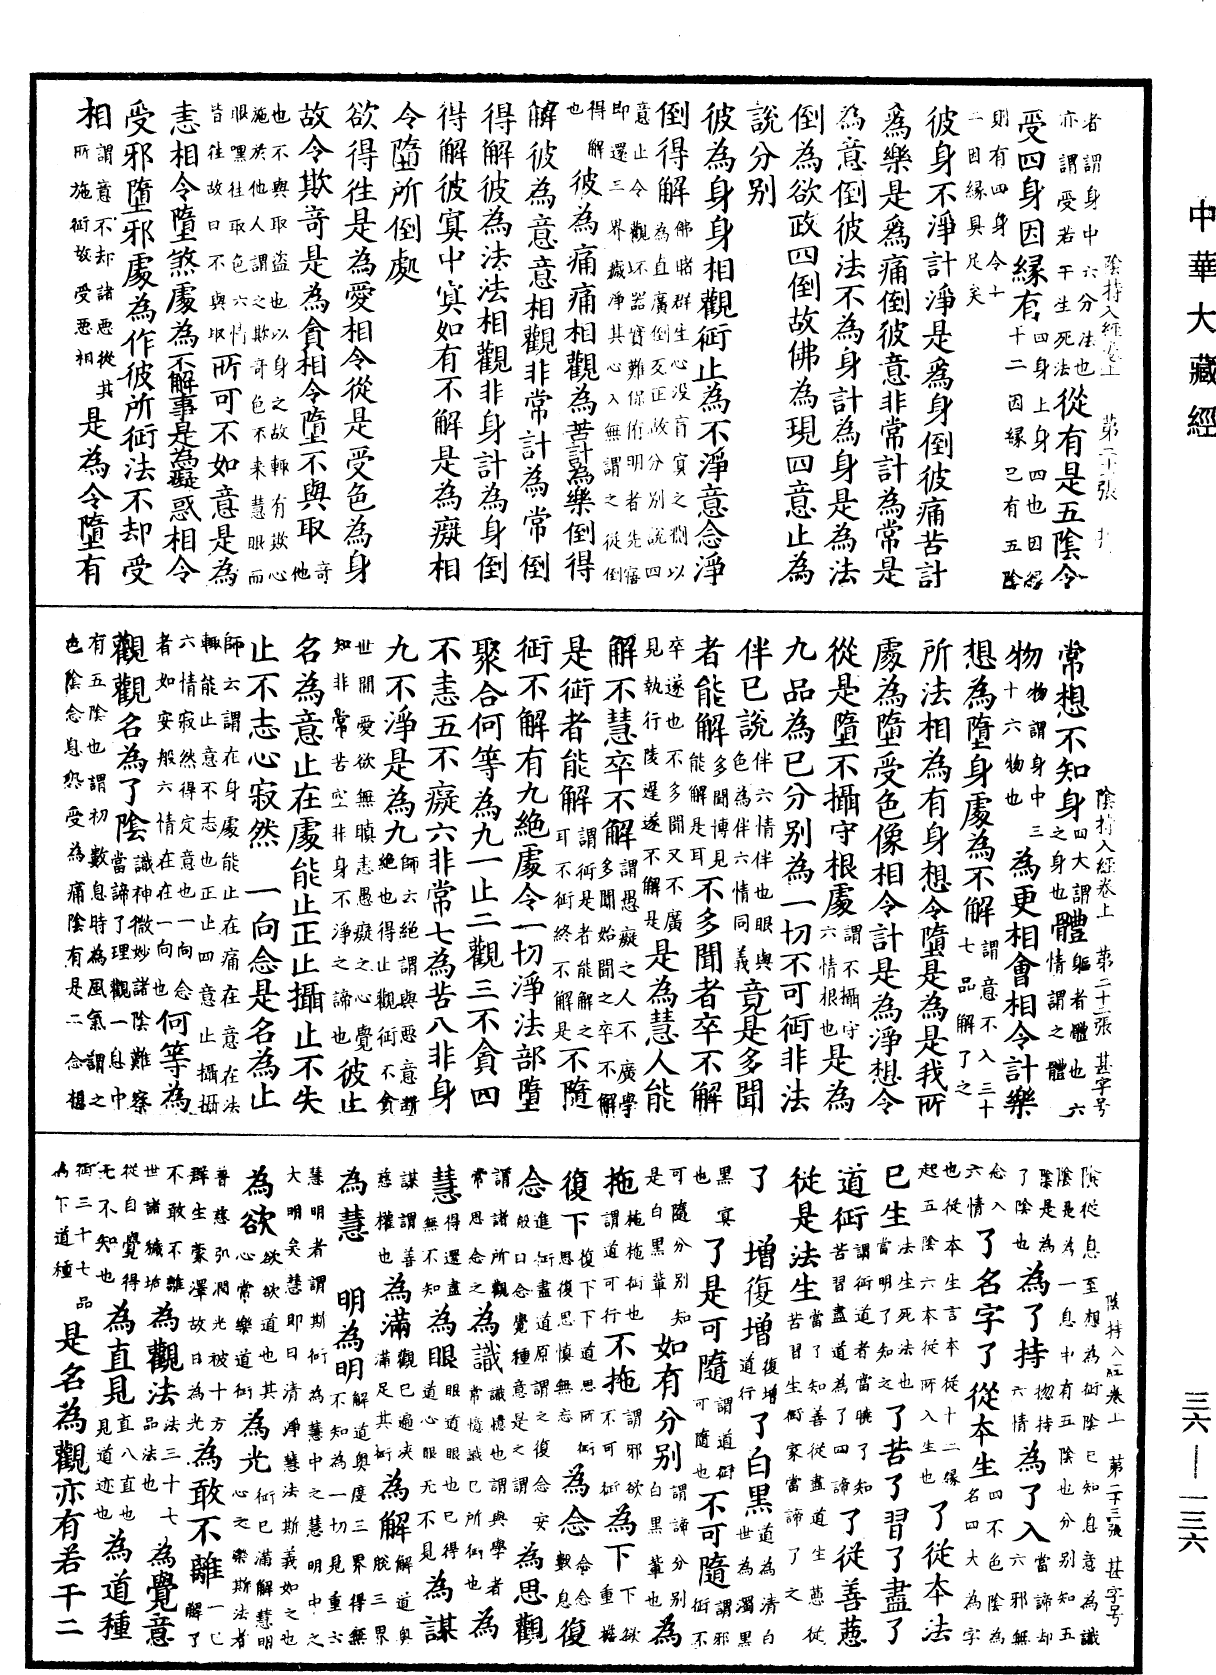 中華大藏經
三六—一三六
陰持入經卷上　第二十一張　甚
者謂身中六分法也亦謂受若干生死法從有是五陰令
受四身因緣有四身上身四也因緣則有四身令十二因緣具足矣十二因緣已有五陰
彼身不淨計淨是為身倒彼痛苦計
為樂是為痛倒彼意非常計為常是
為意倒彼法不為身計為身是為法
倒為欲政四倒故佛為現四意止為
說分別
彼為身身相觀衍止為不淨意念淨
倒得解佛睹群生心沒盲冥之淵以為直廣倒反正故分別說四意止令觀坏器寶難保術明者先寤即還三界癡淨其心入無謂之從倒得解也彼為痛痛相觀為苦計為樂倒得
解彼為意意相觀非常計為常倒
得解彼為法法相觀非身計為身倒
得解彼冥中冥如有不解是為癡相
令墮所倒處
欲得往是為愛相令從是受色為身
故令欺奇是為貪相令墮不與取奇他也不與取盜也以身之故輒有欺心施於他人謂之欺奇色不來慧眼而眼嘿往取色六情皆往故曰不與取所可不如意是為
恚相令墮煞處為不解事是為癡惑相令
受邪墮邪處為作彼所衍法不却受
相謂意不却諸惡從其所施術故受惡相是為令墮有
陰持入經卷上　第二十二張　甚字号
常想不知身四大謂之身也體軀者體也六情謂之體
物物謂身中三十六物也為更相會相令計樂
想為墮身處為不解謂意不入三十七品解了之
所法相為有身想令墮是為是我所
處為墮受色像相令計是為淨想令
從是墮不攝守根處謂不攝守六情根也是為
九品為已分別為一切不可衍非法
伴已說伴六情伴也眼與色為伴六情同義竟是多聞
者能解多聞博見能解是耳不多聞者卒不解
卒遂也不多聞又不廣見執行陵遲遂不解是是為慧人能
解不慧卒不解謂愚癡之人不廣學多聞始聞之卒不解
是衍者能解謂術是者能解之耳不術終不解是不隨
衍不解有九絕處令一切淨法部墮
聚合何等為九一止二觀三不貪四
不恚五不癡六非常七為苦八非身
九不淨是為九師云絕謂與惡意斷絕也得止觀術不貪世間愛欲無瞋恚愚癡之心覺知非常苦空非身不淨之諦也彼止
名為意止在處能止正止攝止不失
止不志心寂然一向念是名為止
師云謂在身處能止在痛在意在法輒能止意不志也正止四意止攝攝六情寂然得定意也一向念者如安般六情在在一向也何等為
觀觀名為了陰識神微妙諸陰難察當諦了理觀一息中有五陰也謂初數息時為風氣謂之色陰念息怨受為痛陰有是二念想
陰持入經卷上　第二十三張　甚字号
陰從息至想為術陰已知息意為識陰是為一息中有五陰也分別知五陰是為了陰也為了持惚持當諦却六情六邪無為了入
念入六情了名字了從本生四不色陰為名四大為字也從本生言本從十二緣起五陰六本從所入生也了從本法
已生法生死法也當明了知之了苦了習了盡了
道術謂術道者當曉了知苦習盡道為了四諦了從善惡
從是法生當了知善從盡道生惡從苦習生術家當諦了之
了　增復增復增道行了白黑道為清白世為濁黑
黑冥也了是可隨謂道術可隨也不可隨謂邪術不
可隨分別知是白黑輩如有分別謂諦分別白黑輩也為
拖拖拖術也謂道可行不拖謂邪欲不可術為下下欲重擔
復下復下下道思所術思復思慎無忘為念念念復數息復
念進術盡道原謂之復念安般曰念覺種意是之謂為思觀
謂諸所觀常思念之為識識憶也謂與學者常憶識已所術也為
慧得還盡無不知為眼眼道眼也已得道心眼無不見為謀
謀謂善權也慈為滿觀已遍浹滿足其術為解解道奧三脫三界
為慧　明為明解道奧度三界得無不知為一切見重六
慧明者謂斯術為慧中之慧明中之大明矣慧即曰清淨慧法斯義如之也
為欲欲欲道也其心常樂道術為光術已滿解慧明心之樂斯法者
普慈弘潤光被十方群生蒙澤故曰為光為敢不離解了一亡
不敢不離世諸穢垢為觀法法三十七品法也為覺意
從自覺得无不知也為直見直八直也見道迹也為道種
術三十七品為下道種是名為觀亦有若干二